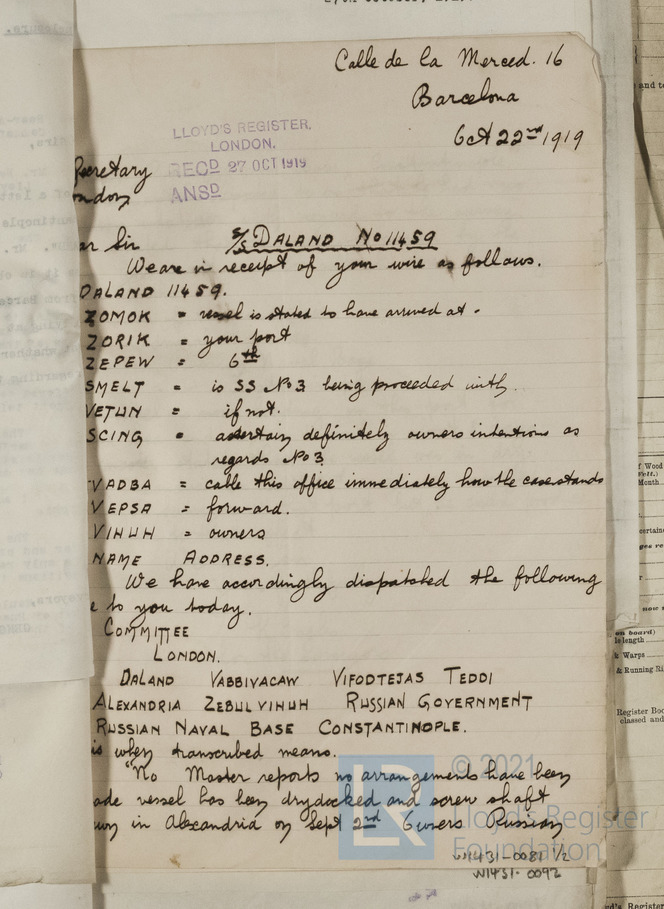 Calle de la Merced. 16
Barcelona
Oct 22nd 1919
LLOYD'S REGISTER,
LONDON.
REC'D 27 OCT 1919
ANSD
Secretary
ondon
ar Sir S/S DALAND No 11459
We are in receipt of your wire as follows.
DALAND 11459.
ZOMOK = vessel is stated to have arrived at -
ZORIK = your port
ZEPEW = 6th
SMELT = is SS No 3 being proceeded with.
VETUN = if not.
SCING = ascertain definitely owners intentions as
regards No 3
VADBA = cable this office immediately how the case stands
VEPSA = forward.
VIHUH = owners
NAME ADDRESS.
We have accordingly dispatched the following
e to you today.
COMMITTEE
LONDON.
DALAND VABBIVACAW VIFODTEJAS TEDDI
ALEXANDRIA ZEBULVIHUH RUSSIAN GOVERNMENT
RUSSIAN NAVAL BASE CONSTANTINOPLE.
is when transcribed means.
"No Master reports no arrangements have been
ade vessel has been drydocked and screw shaft
in Alexandria on Sept 2nd Owners Russian
© 2021
LR
Lloyd's Register
Foundation
W1431-0081 1/2
W1431-0092
and to
Month
certain
on board)
le length
Warps
& Running Ri
Register Boo
classed and
d's Register